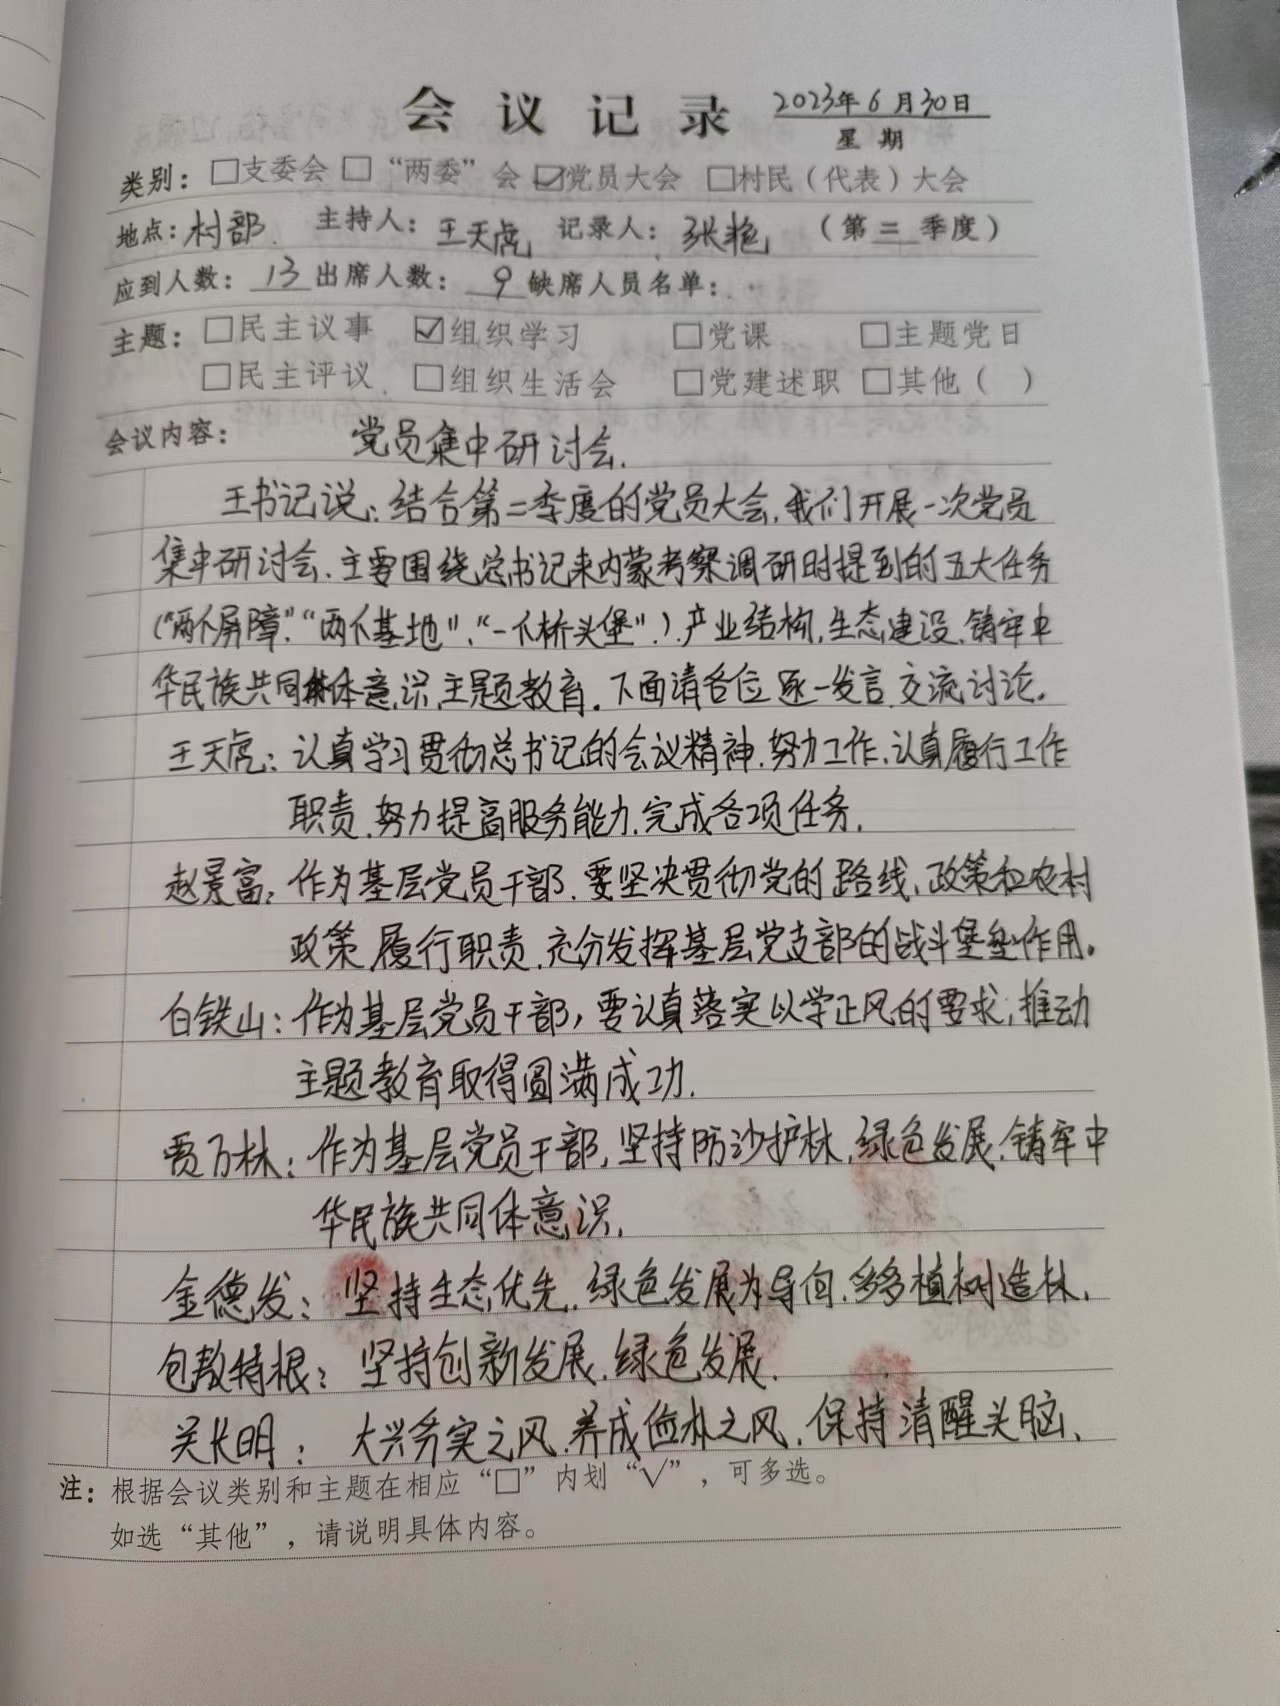 会议记录 2023年6月30日
星期
类别：□支委会 □“两委”会 ☑党员大会 □村民（代表）大会
地点：村部. 主持人：王天虎 记录人：张艳 （第二季度）
应到人数：13 出席人数：9 缺席人员名单：
主题：□民主议事 ☑组织学习 □党课 □主题党日
□民主评议 □组织生活会 □党建述职 □其他（ ）
会议内容： 党员集中研讨会.
王书记说：结合第二季度的党员大会,我们开展一次党员
集中研讨会.主要围绕总书记来内蒙考察调研时提到的五大任务
(“两个屏障”.“两个基地”、“一个桥头堡”.).产业结构,生态建设.铸牢中
华民族共同体意识,主题教育.下面请各位逐一发言,交流讨论.
王天虎：认真学习贯彻总书记的会议精神.努力工作.认真履行工作
职责.努力提高服务能力.完成各项任务.
赵景富：作为基层党员干部.要坚决贯彻党的路线、政策和农村
政策,履行职责.充分发挥基层党支部的战斗堡垒作用。
白铁山：作为基层党员干部，要认真落实以学正风的要求,推动
主题教育取得圆满成功.
贾万林：作为基层党员干部,坚持防沙护林,绿色发展.铸牢中
华民族共同体意识.
金德发：坚持生态优先.绿色发展为导向.多多植树造林.
包敖特根：坚持创新发展.绿色发展.
关长明：大兴务实之风.养成俭朴之风.保持清醒头脑、
注：根据会议类别和主题在相应“□”内划“√”，可多选。
如选“其他”，请说明具体内容。